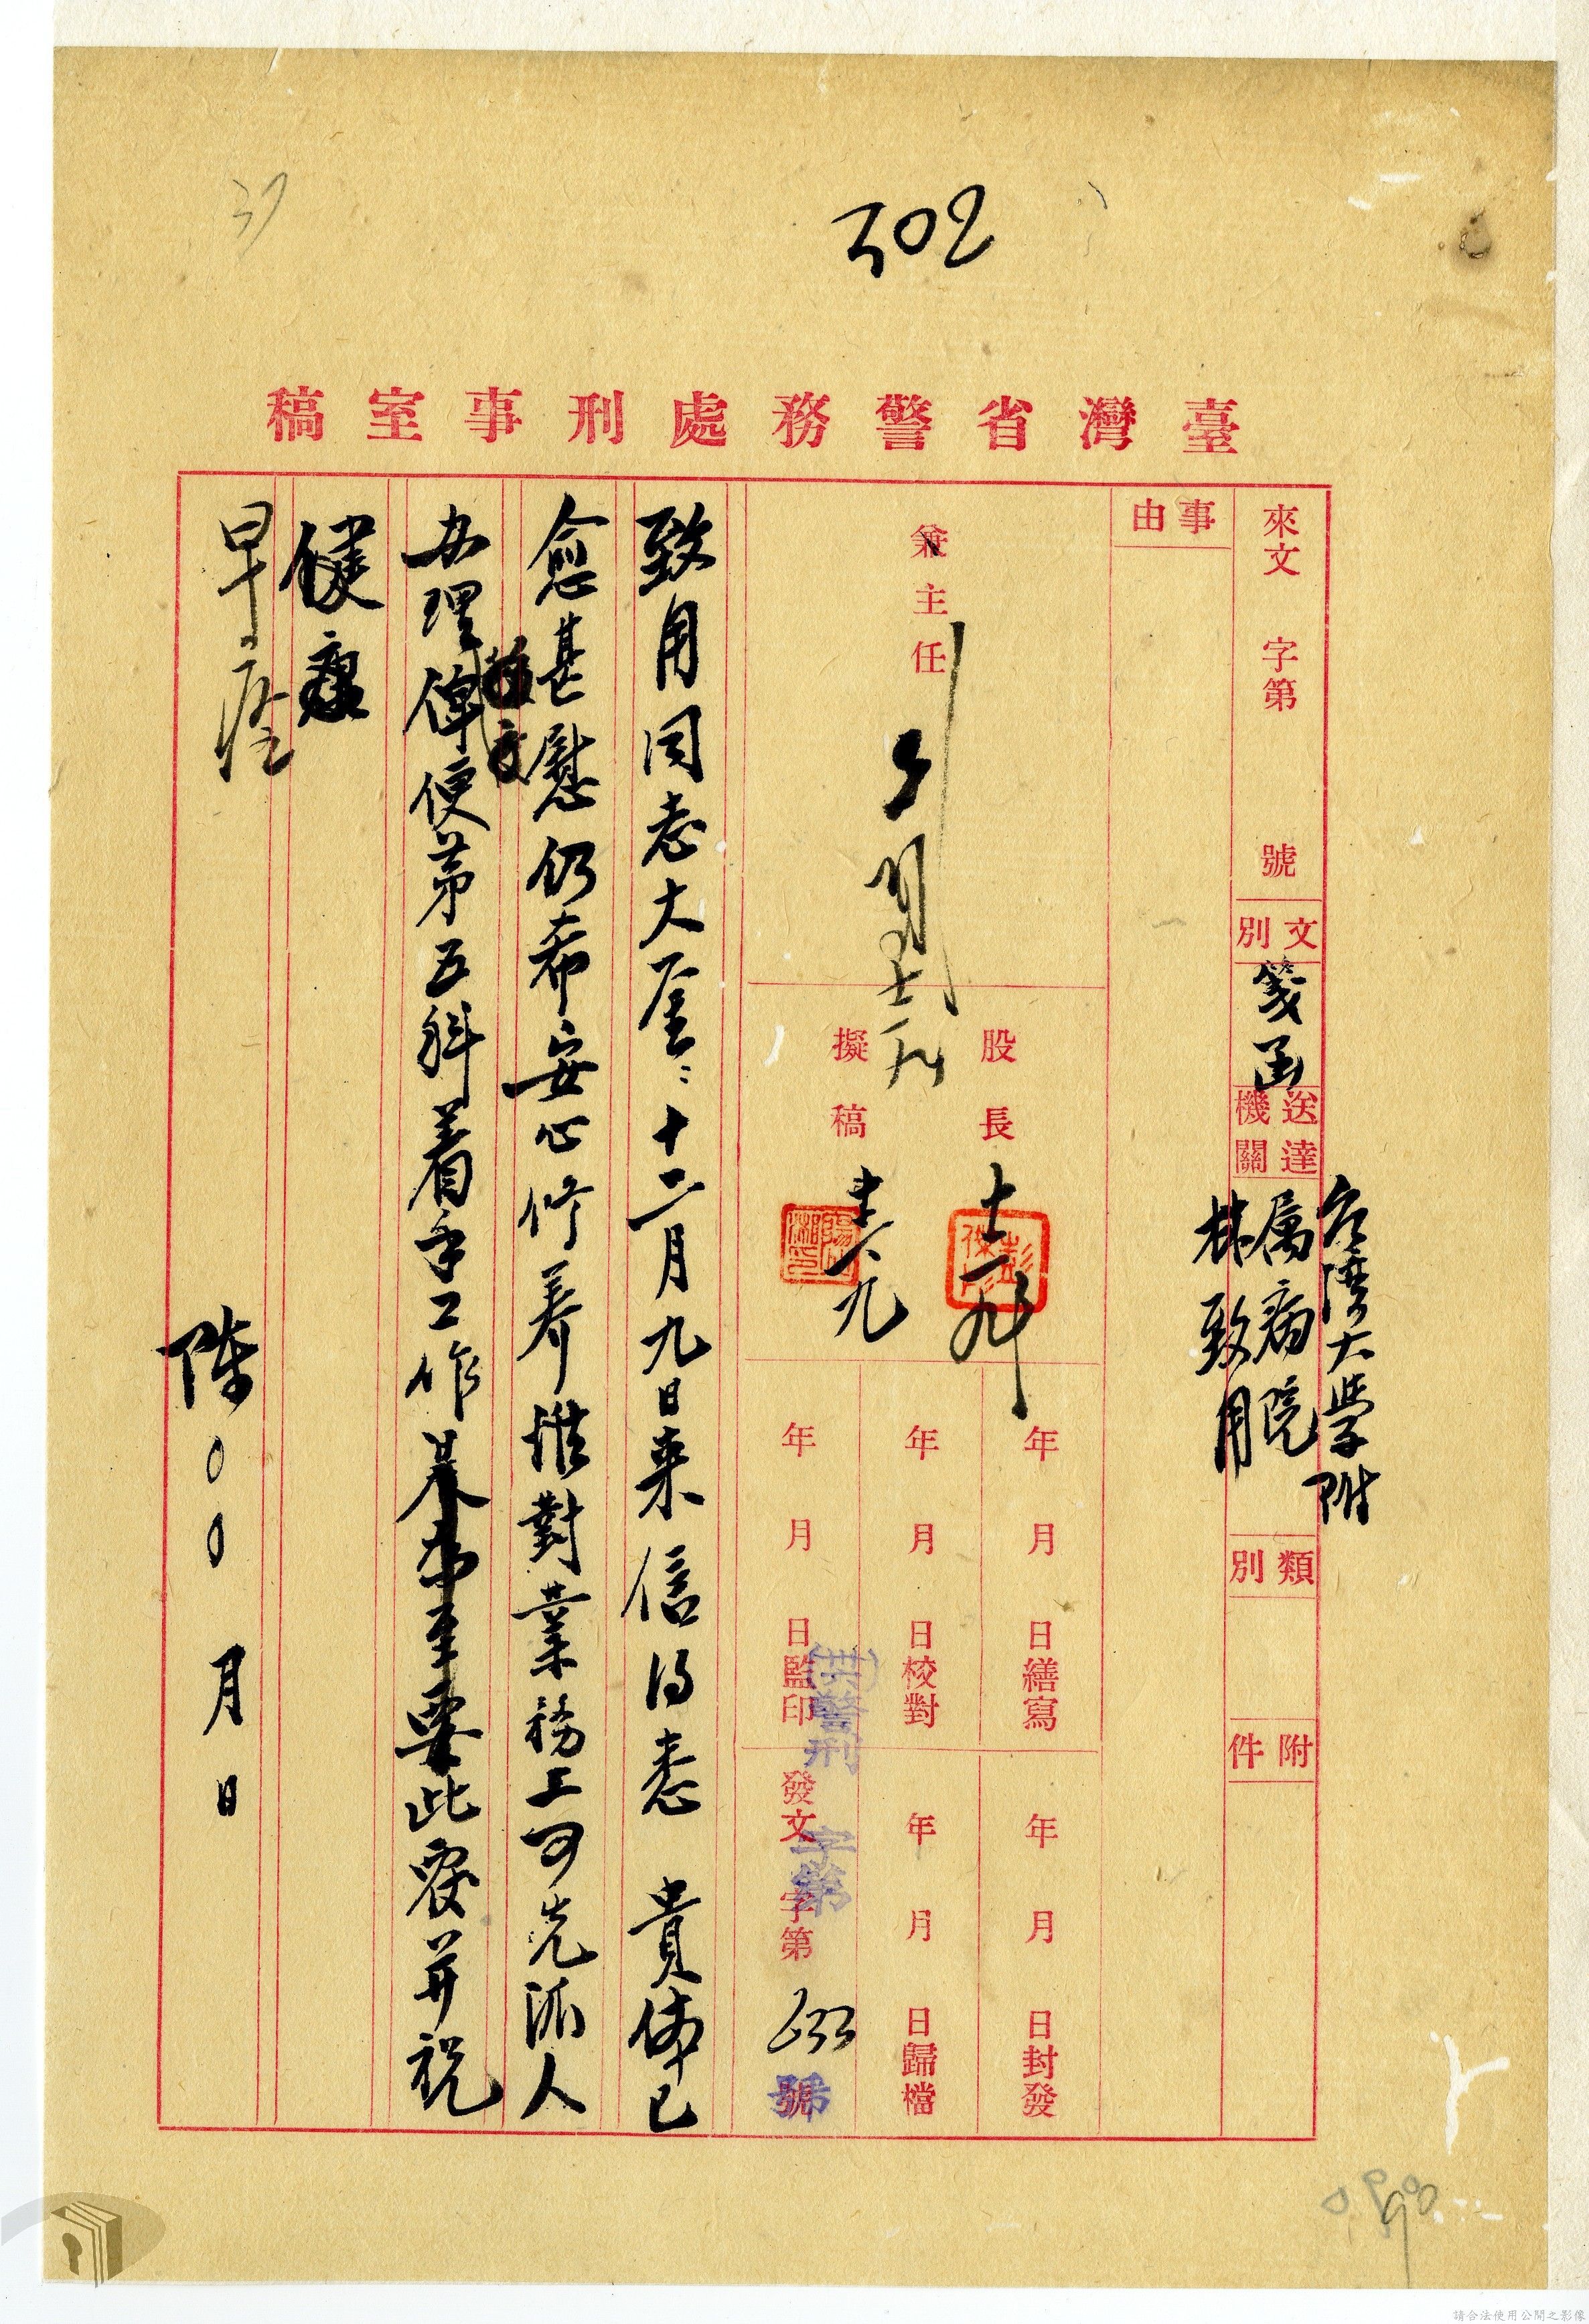 302
37
臺灣省警務處刑事室稿
來文 字第 號
文別 箋函
送達機關
台灣大學附
属病院
林致用
類別
附件
事由
兼主任
股長 十二 九
擬稿 十二 九
年 月 日繕寫
年 月 日校對
年 月 日監印
年 月 日封發
年 月 日歸檔
發文 字第 號
警刑 字第 號
致用同志大鉴：十二月九日來信得悉 貴体已
愈甚慰仍希安心修养惟對業務上可先派人
办理俾便第五科着手工作 此覆并祝
健康
早痊
陈〇〇 月 日
90
請合法使用公開之影像